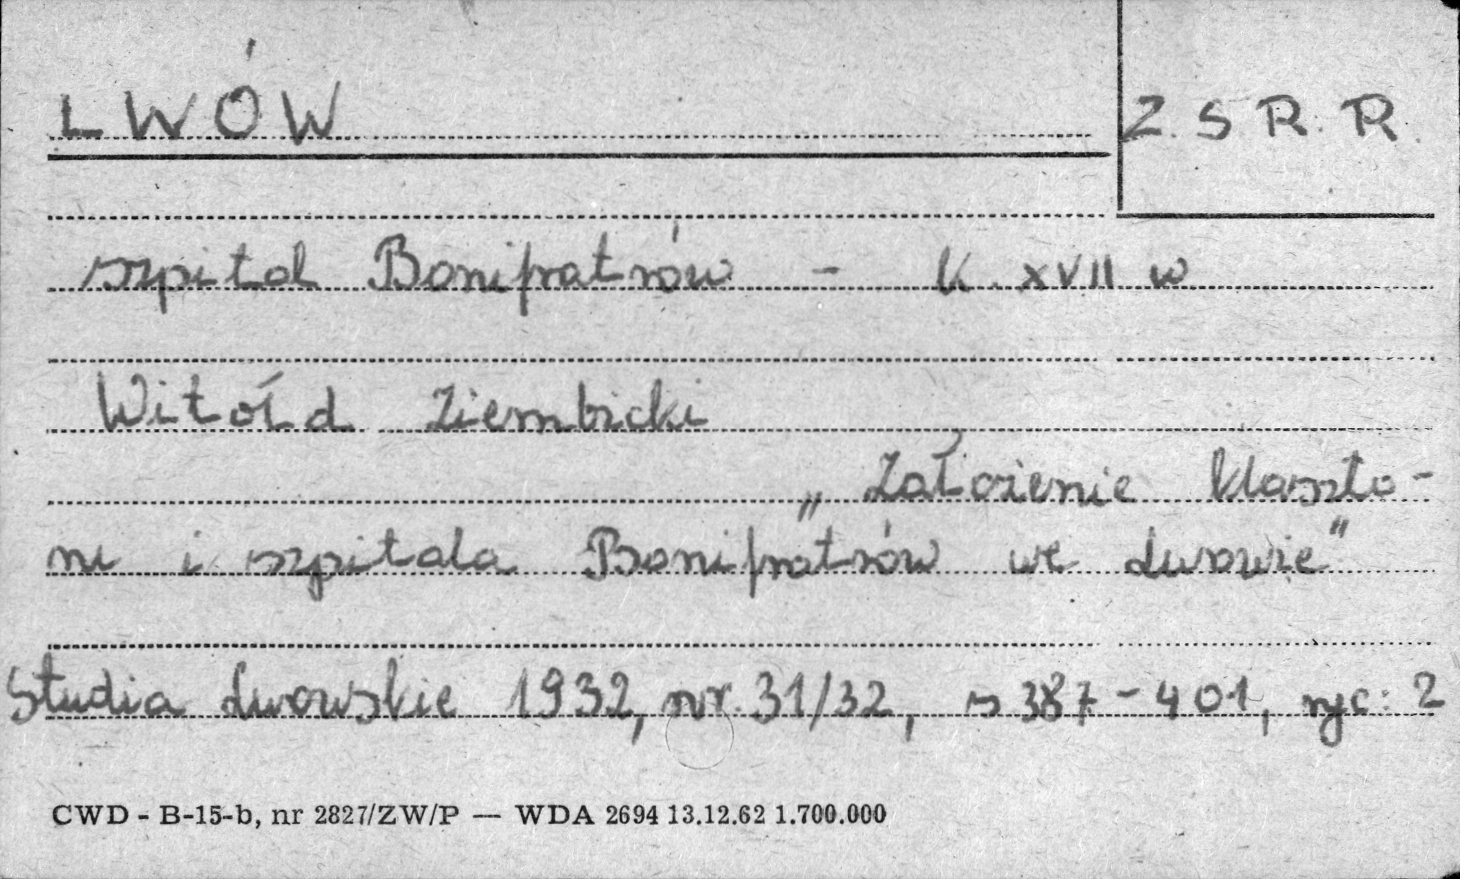 LWÓW
Z.S.R.R.
szpital Bonifratrów - K. XVII w
Witołd Ziembicki
„Założenie klaszto-
ru i szpitala Bonifratrów we Lwowie"
Studia Lwowskie 1932, nr. 31/32, s 387-401, ryc: 2
CWD - B-15-b, nr 2827/ZW/P — WDA 2694 13.12.62 1.700.000